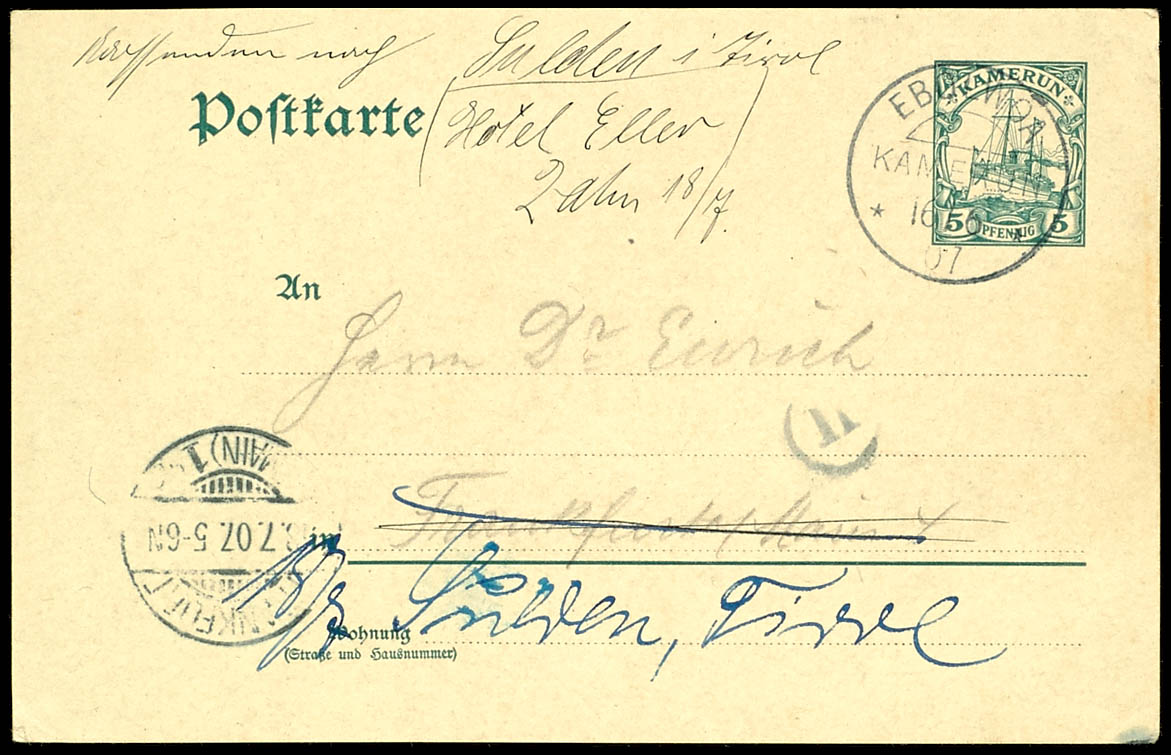 nach Sulden i Tirol
Postkarte
Hotel Eller
18/7.
KAMERUN
5 PFENNIG 5
EBOLOWA
KAMERUN
* 16 6 *
07
An
Herrn Dr Eurich
Frankfurt Main
in
Sulden, Tirol
Wohnung
(Straße und Hausnummer)
MAIN) 1
.7.07. 5-6N
FRANKFURT